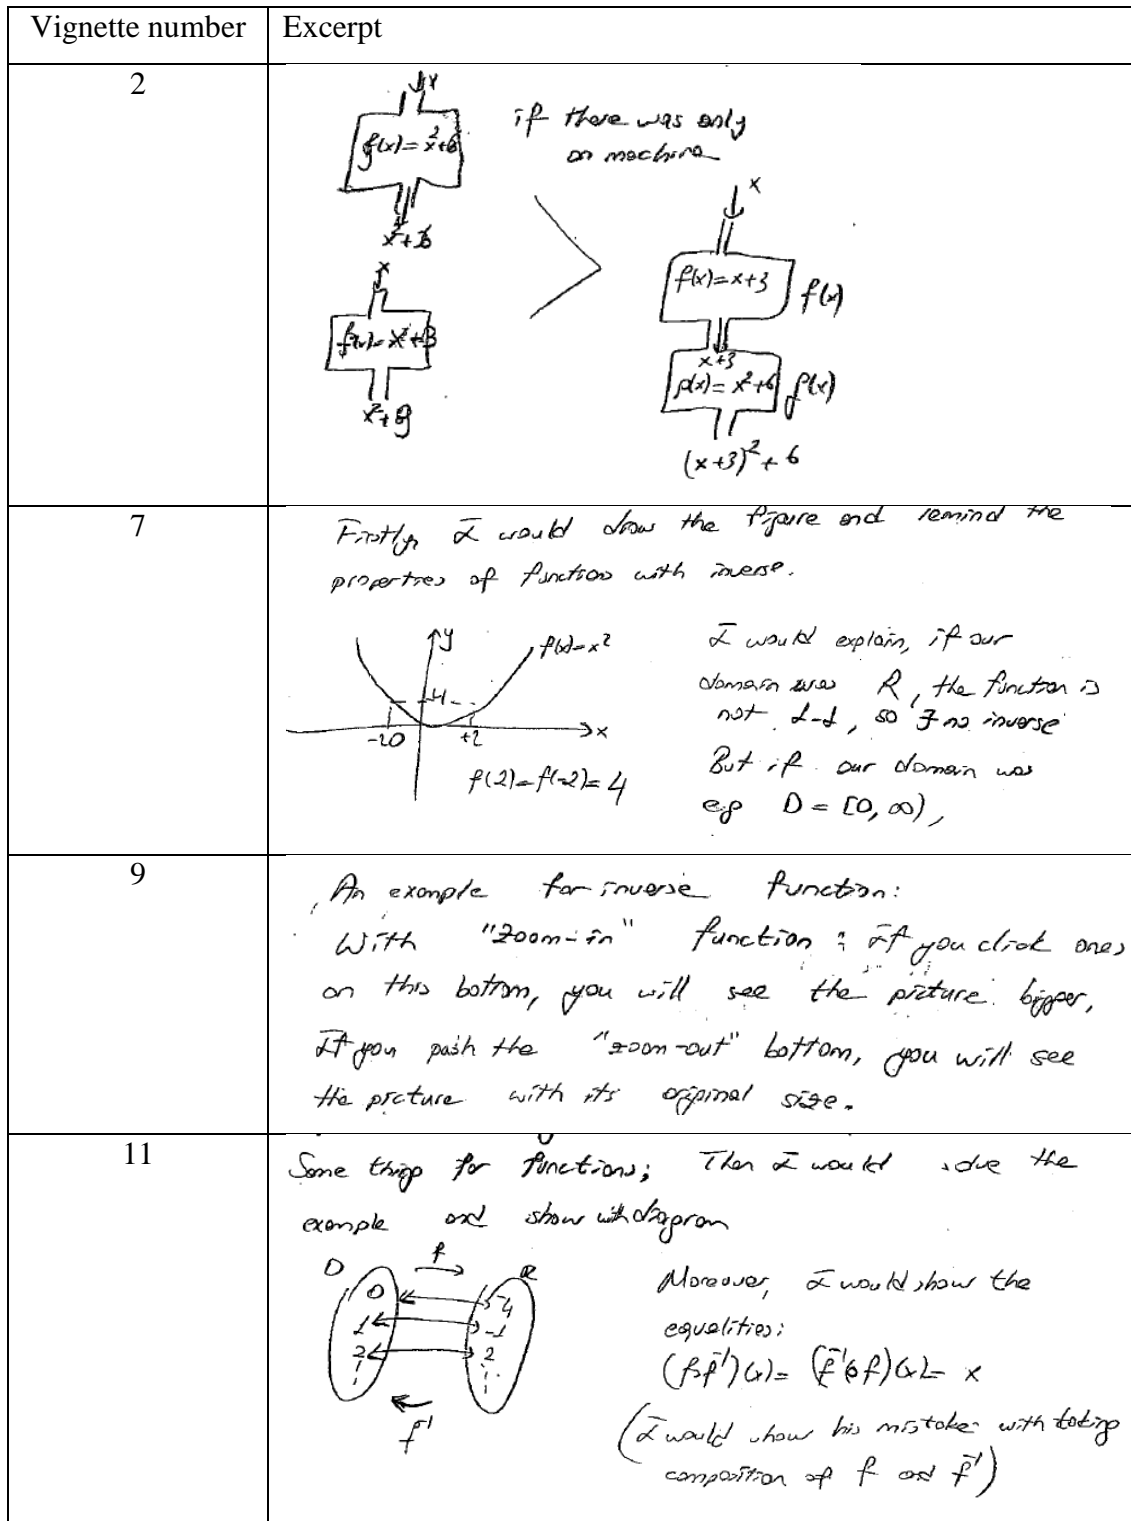 Vignette number Excerpt
2
x
if there was only
on machine
g(x)=x²+6
x
x
f(x)=x+3 f(x)
x+3
g(x)=x²+6 g(x)
(x+3)²+6
7
Firstly, I would draw the figure and remind the
properties of function with inverse.
y
f(x)=x²
4
-2 0 +2 x
f(2)=f(-2)=4
I would explain, if our
domain was R, the function is
not 1-1, so ∃ no inverse
But if our domain was
eg D = [0, ∞),
9
An example for inverse function:
With "zoom-in" function : If you click ones
on this bottom, you will see the picture bigger,
If you push the "zoom-out" bottom, you will see
the picture with its original size.
11
Same thing for functions; Then I would solve the
example and show with diagram
D f R
0 -4
1 -1
2 2
f⁻¹
Moreover, I would show the
equalities:
(fof⁻¹)(x)= (f⁻¹of)(x)= x
(I would show his mistake with taking
composition of f and f⁻¹)